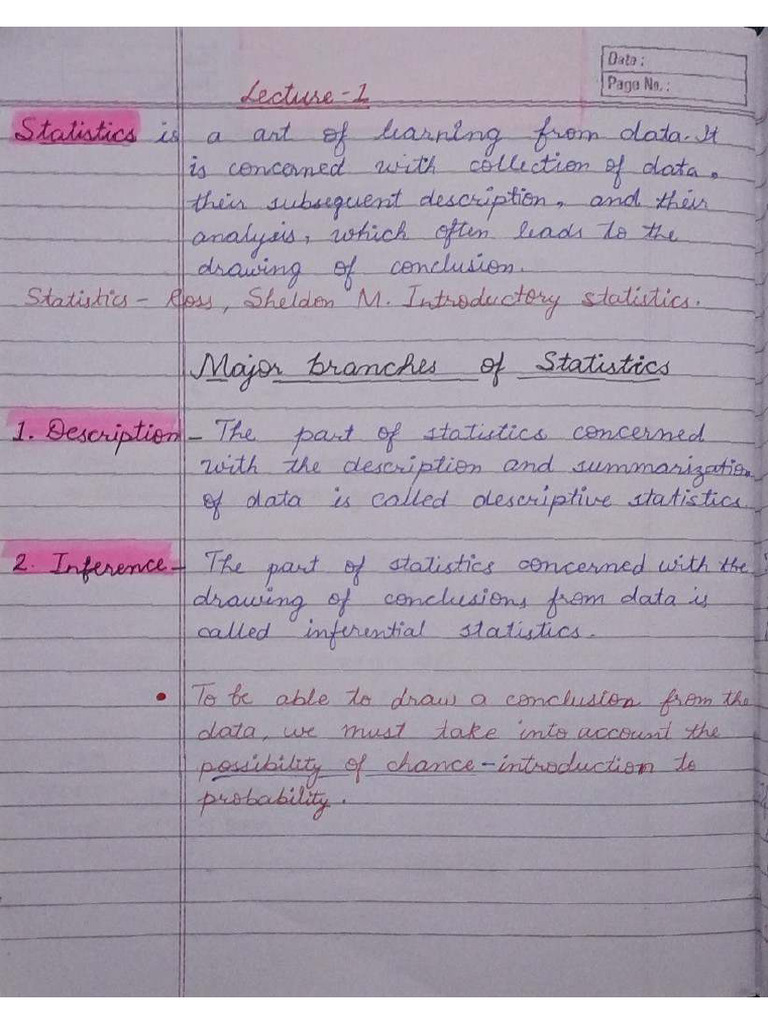 Date :
Page No. :
Lecture-1
Statistics is a art of learning from data. It
is concerned with collection of data,
their subsequent description, and their
analysis, which often leads to the
drawing of conclusion.
Statistics - Ross, Sheldon M. Introductory statistics.
Major branches of Statistics
1. Description - The part of statistics concerned
with the description and summarization
of data is called descriptive statistics
2. Inference - The part of statistics concerned with the
drawing of conclusions from data is
called inferential statistics.
• To be able to draw a conclusion from the
data, we must take into account the
possibility of chance - introduction to
probability.